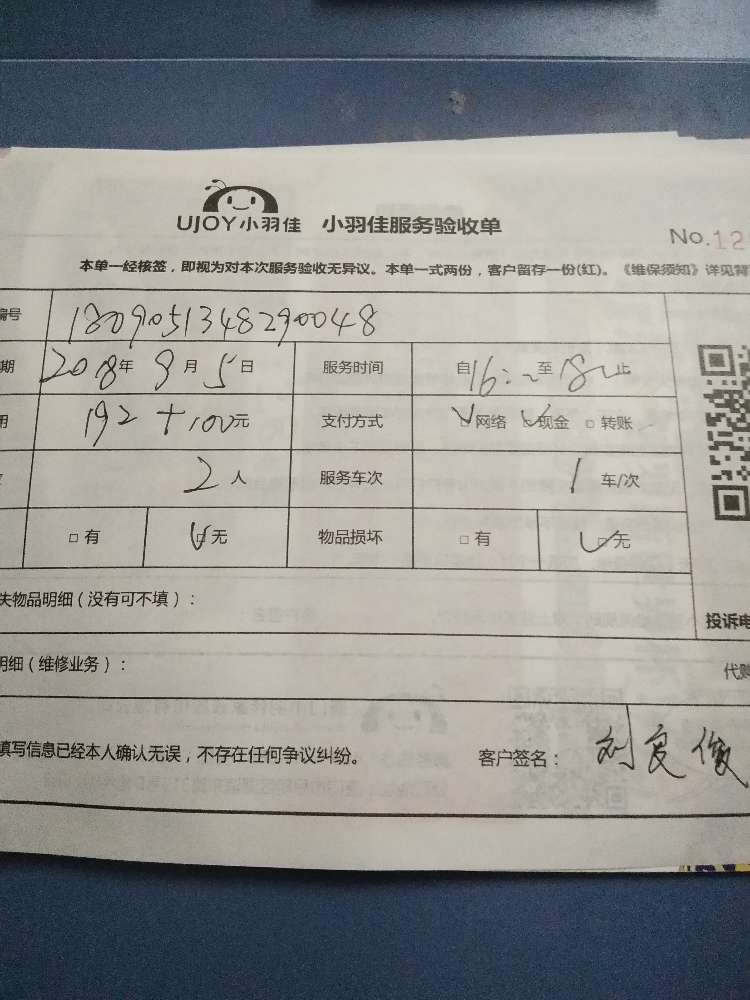 UJOY小羽佳 小羽佳服务验收单
No.12
本单一经核签，即视为对本次服务验收无异议。本单一式两份，客户留存一份(红)。《维保须知》详见背
编号 1809051348290048
期 2018年 9月 5日 服务时间 自16: 至18 止
用 192+100元 支付方式 ☑网络 ☑现金 □转账
2人 服务车次 1车/次
□有 ☑无 物品损坏 □有 ☑无
失物品明细（没有可不填）：
投诉电
明细（维修业务）：
代购
填写信息已经本人确认无误，不存在任何争议纠纷。 客户签名：刘良俊